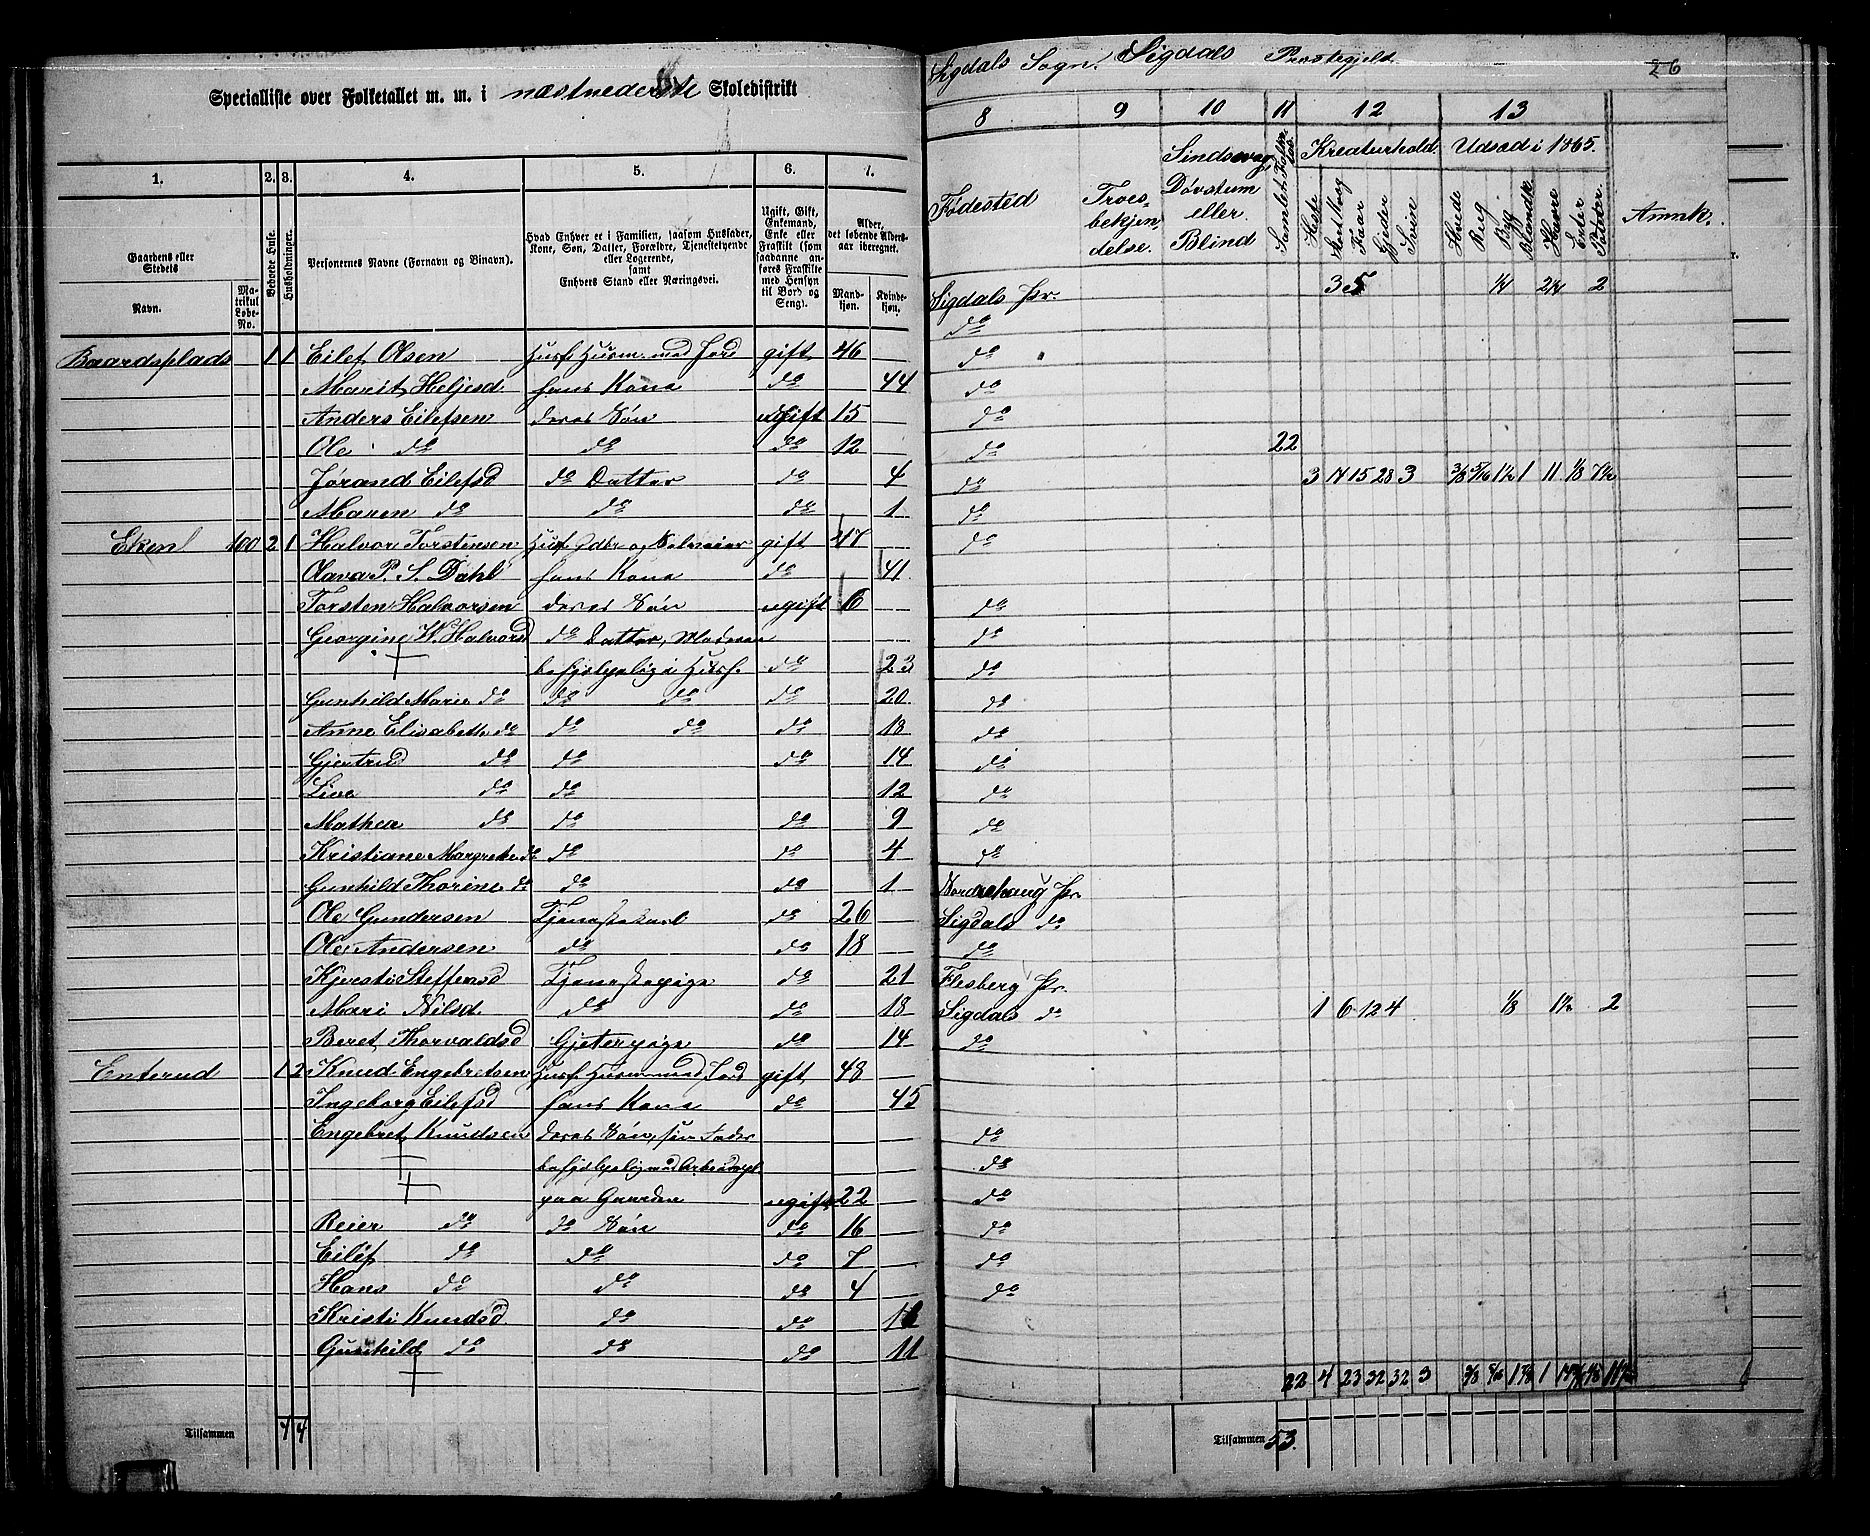 Specialliste over Folketallet m. m. i næstnederste Skoledistrikt
1. 2. 3. 4. 5. 6. 7.
Gaardens eller Stedets
Navn.
Matrikul Løbe-No.
Beboede Huse.
Husholdninger.
Personernes Navne (Fornavn og Binavn).
Hvad Enhver er i Familien, saasom Husfader, Kone, Søn, Datter, Forældre, Tjenestetyende eller Logerende, samt Enhvers Stand eller Næringsvei.
Ugift, Gift, Enkemand, Enke eller Fraskilt (som saadanne anføres Fraskilte med Hensyn til Bord og Seng).
Alder, det løbende Aldersaar iberegnet.
Mandkjøn.
Kvindekjøn.
Baardsplads 1 1 Eilef Olsen Husf. Husm. med Jord gift 46
Marit Heljesd. hans Kone do 44
Anders Eilefsen deres Søn ugift 15
Ole do do do 12
Jørand Eilefsd do Datter do 4
Maren do do do 1
Eken 100 2 1 Halvor Torstensen Husf. Gdbr. og gift 47
Olava P. S. Dahl hans Kone do 41
Torsten Halvorsen deres Søn ugift 16
Georgine W. Halvorsd do Datter,
Husf. do 23
Gunhild Marie do do do do 20
Anne Elisabeth do do do do 18
Gjertrud do do do 14
Live do do 12
Mathea do do do 9
Kristiane Margrethe do do do 4
Gunhild Thorine do do do 1
Ole Gundersen Tjenestekarl do 26
Ole Andersen do do 18
Kjersti Steffensd Tjenestepige do 21
Mari Nilsd do do 18
Beret Thorvaldsd Gjeterpige do 14
Enterud 1 2 Knud Engebretsen Husf. Husm. med Jord gift 48
Ingeborg Eilefsd hans Kone do 45
Engebret Knudsen deres Søn, sin Fader
behjelpelig med
paa Gaarden ugift 22
Reier do do Søn do 16
Eilef do do do 7
Hans do do do 4
Kristi Knudsd do do
Gunhild do do do 11
Tilsammen 4 4
Sigdals Sogn. Sigdals Præstegjeld. 26
8 9 10 11 12 13
Fødested
Troesbekjendelse.
Sindssvag, Døvstum eller Blind
Samlet Folketal.
Kreaturhold.
Heste
Faar
Gjeder
Sviin
Udsæd i 1865.
Hvede
Rug
Byg
Blandk.
Havre
Erter
Poteter.
Anmk.
Sigdals Pr. 3 5 1/4 2 1/4 2
do
do
do
do
do 22
do 3 14 15 28 3 3/8 5/16 1 1/2 1 11 1/8 7 1/2
do
do
do
do
do
do
do
do
do
do
do
Norderhaug Pr.
Sigdals do
do
Flesberg Pr.
Sigdals do 1 6 12 4 1/8 1 1/2 2
do
do
do
do
do
do
do
22 4 23 32 32 3 3/8 5/16 1 7/8 1
Tilsammen 53.